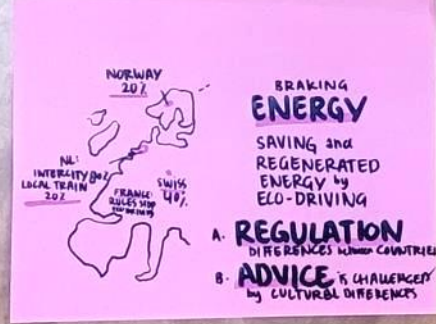 NORWAY
20%
NL:
INTERCITY 80%
LOCAL TRAIN
20%
SWISS
40%
FRANCE:
RULES
BRAKING
ENERGY
SAVING and
REGENERATED
ENERGY by
ECO-DRIVING
A. REGULATION
DIFFERENCES between COUNTRIE
B. ADVICE is CHALLENGED
by CULTURAL DIFFERENCES